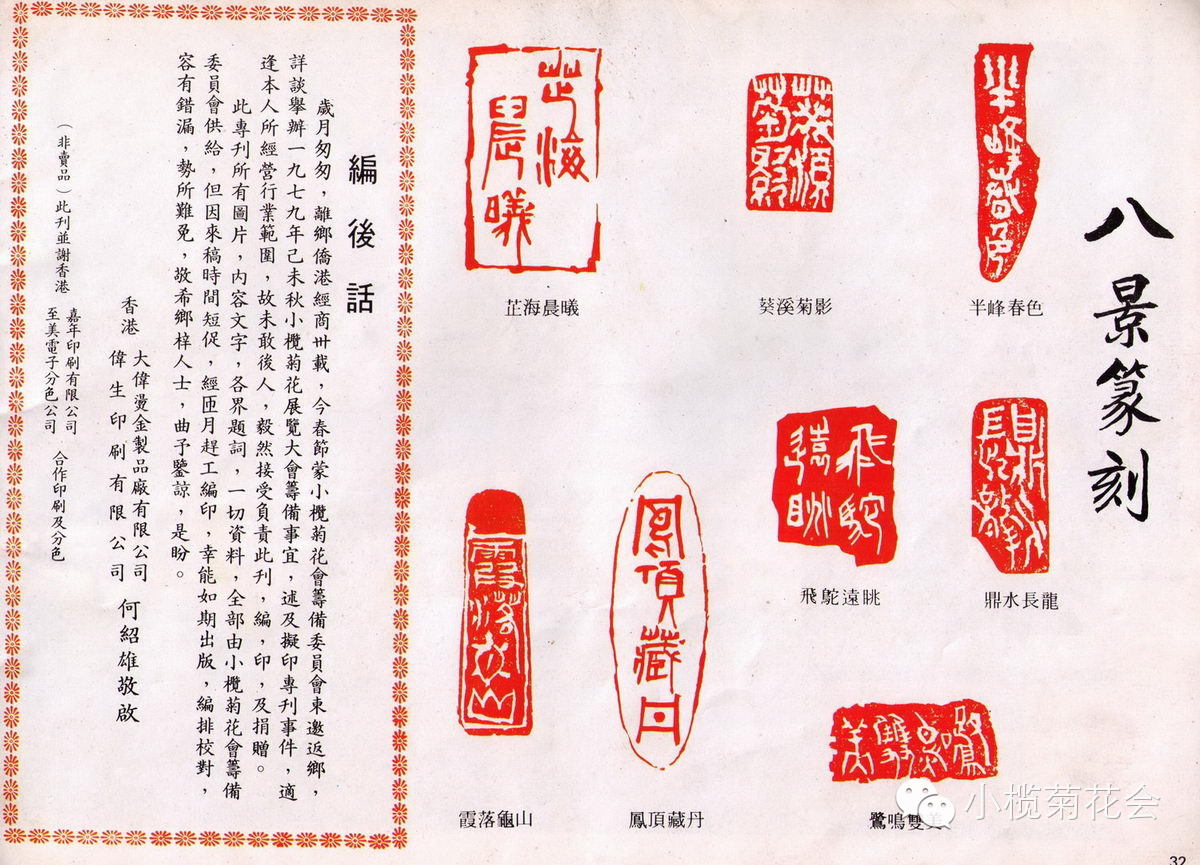 八景篆刻
半峰春色
葵溪菊影
芷海晨曦
鼎水長龍
飛鴕遠眺
鷺鳴雙美
鳳頂藏丹
霞落龜山
編後話
歲月匆匆，離鄉僑港經商卅載，今春節蒙小欖菊花會籌備委員會東邀返鄉，
詳談舉辦一九七九年己未秋小欖菊花展覽大會籌備事宜，述及擬印專刊事件，適
逢本人所經營行業範圍，故未敢後人，毅然接受負責此刊，編，印，及捐贈。
此專刊所有圖片，內容文字，各界題詞，一切資料，全部由小欖菊花會籌備
委員會供給，但因來稿時間短促，經匝月趕工編印，幸能如期出版，編排校對，
容有錯漏，勢所難免，敬希鄉梓人士，曲予鑒諒，是盼。
香港
大偉燙金製品廠有限公司
偉生印刷有限公司
何紹雄敬啟
（非賣品）此刊並謝香港
嘉年印刷有限公司
至美電子分色公司
合作印刷及分色
小榄菊花会
32